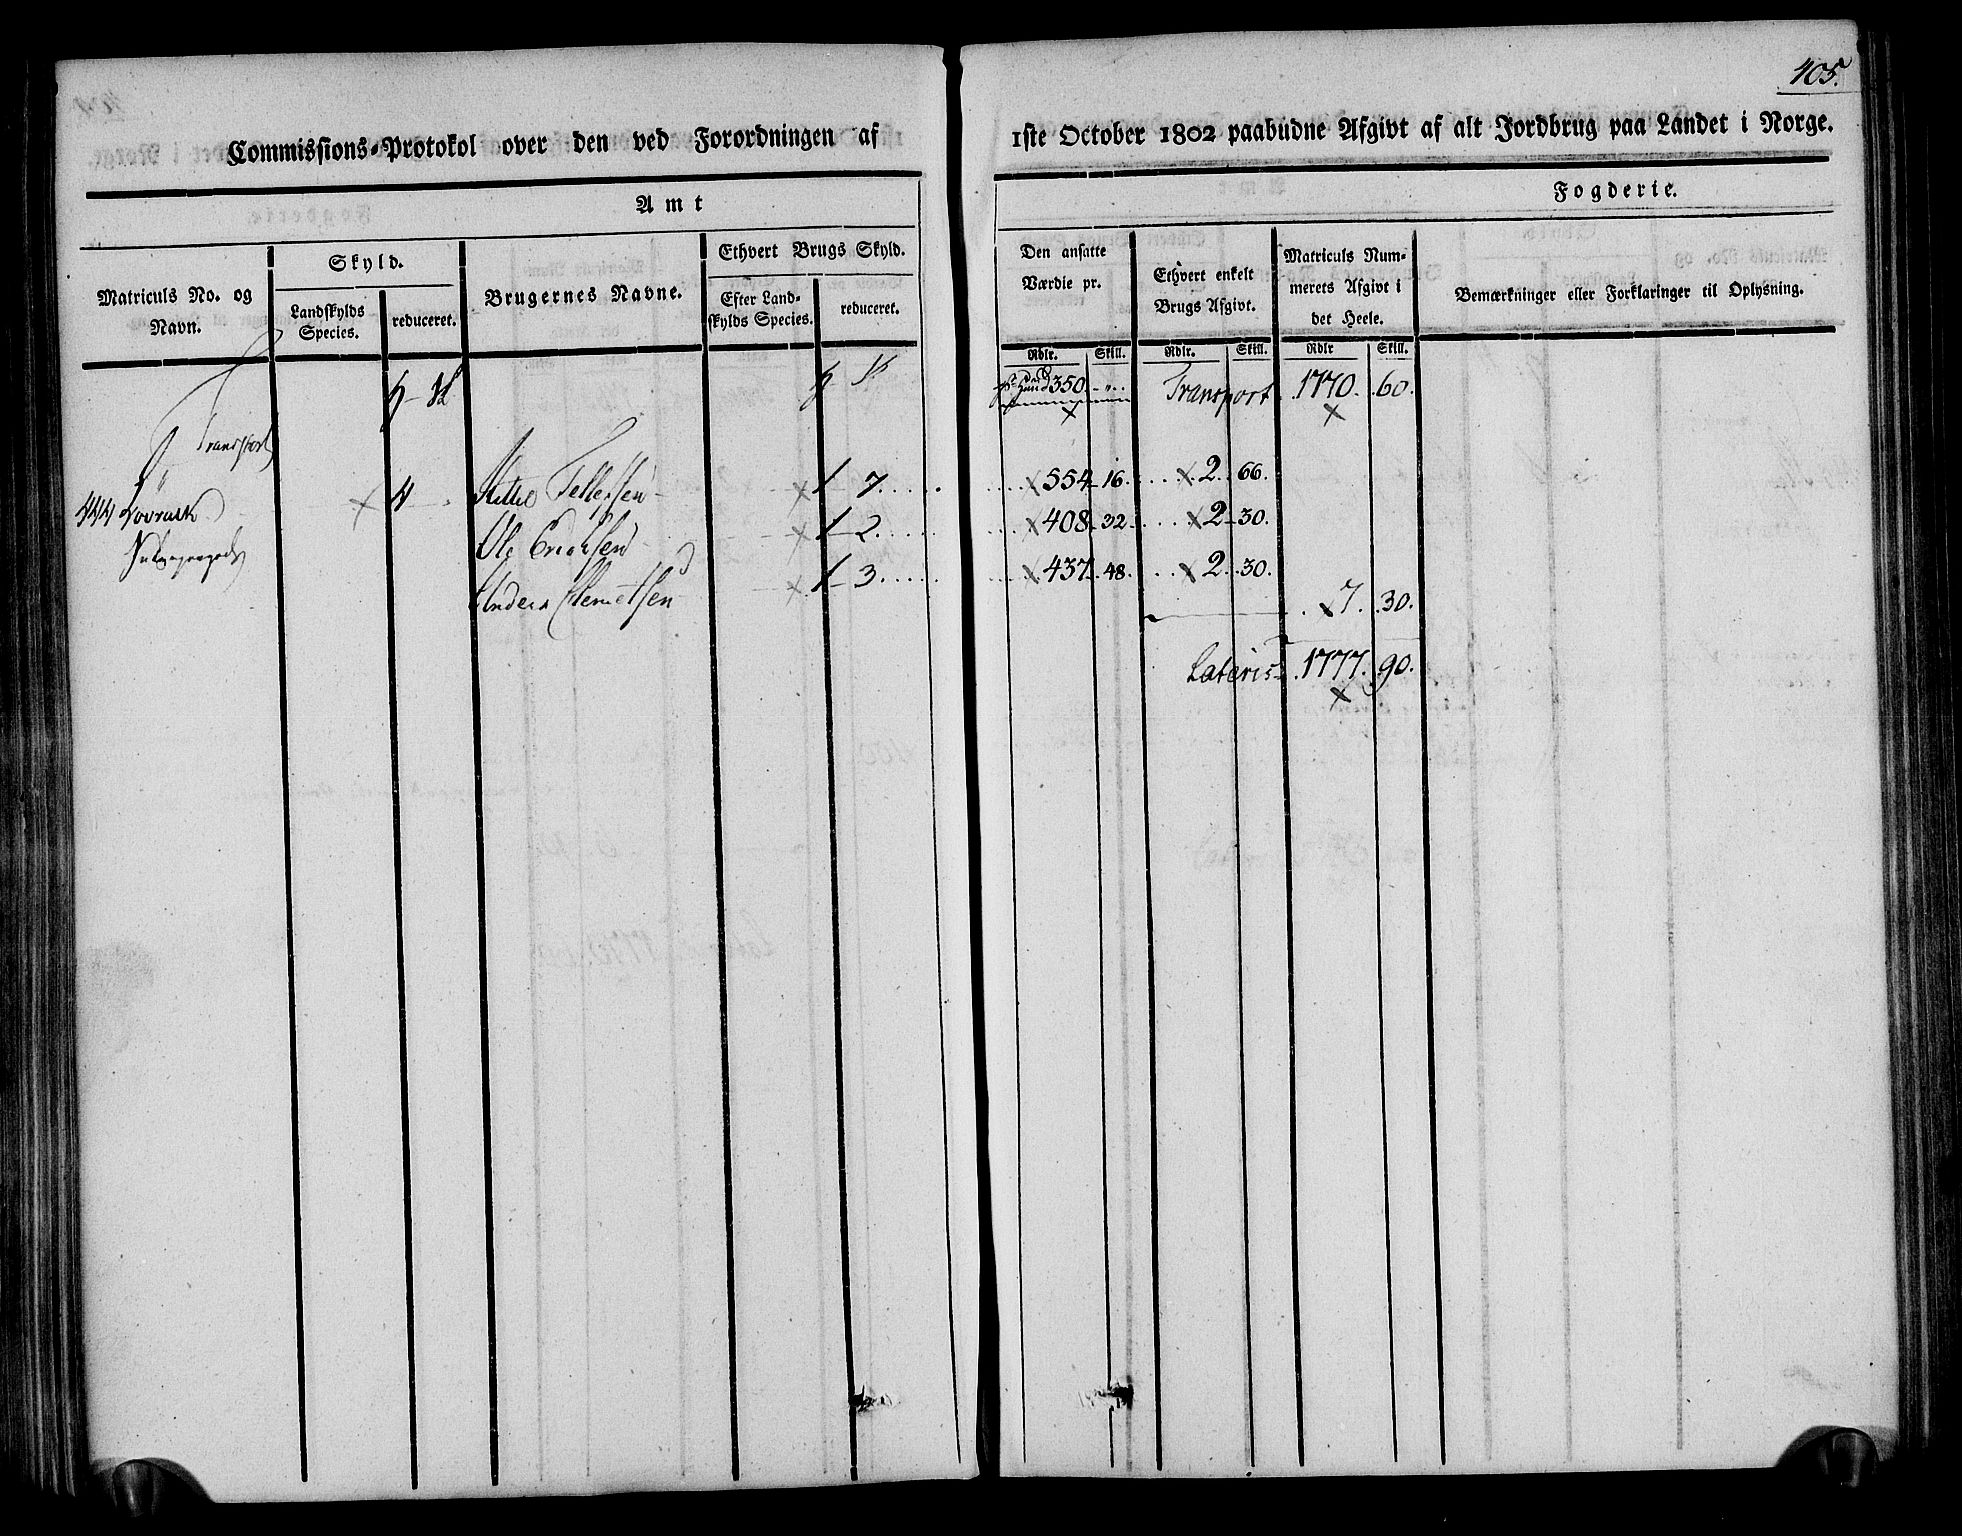 405.
Commissions-Protokol over den ved Forordningen af 1ste October 1802 paabudne Afgivt af alt Jordbrug paa Landet i Norge.
Amt Fogderie.
Matriculs No. og Navn.
Skyld.
Landskylds Species.
reduceret.
Brugernes Navne.
Ethvert Brugs Skyld.
Efter Landskylds Species.
reduceret.
Den ansatte Værdie pr.
Ethvert enkelt Brugs Afgivt.
Matriculs Nummerets Afgivt i det Heele.
Bemærkninger eller Forklaringer til Oplysning.
Rdlr. Skill. Rdlr. Skill. Rdlr Skill.
350 Transport 1770. 60.
Transport
Tellefsen 1 - 7. 554 - 16. 2. 66.
Ole Erichsen 1 - 2. 408 - 32 2 - 30.
Anders Clemetsen 1 - 3. 437. 48. 2. 30.
7. 30.
Lateris 1777. 90.